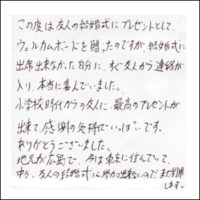 この度は友人の結婚式にプレゼントとして、
ウェルカムボードを贈ったのですが、結婚式に
出席出来なかった自分に、すぐ友人から連絡が
入り、本当に喜んでいました。
小学校時代からの友に、最高のプレゼントが
出来て、感謝の気持でいっぱいです。
ありがとうございました。
地元が広島で、今は東京に住んでいて、
中々、友人の結婚式に参加出来ないので、また利用
します。